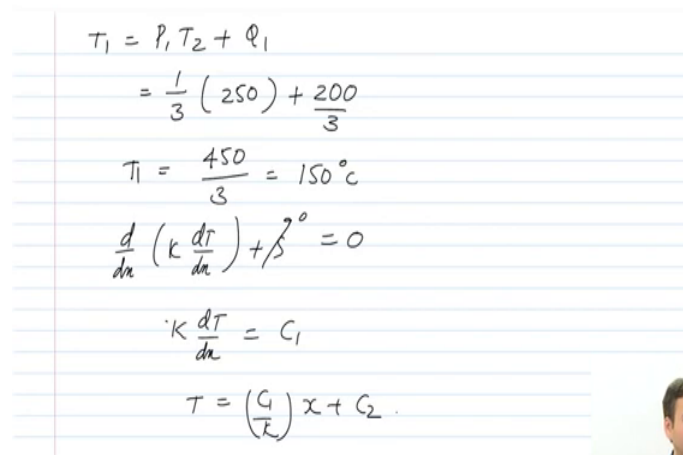 T₁ = P₁T₂ + Q₁
= 1/3 (250) + 200/3
T₁ = 450/3 = 150°c
d/dx (K dT/dx) + S⁰ = 0
K dT/dx = C₁
T = (C₁/K) x + C₂.